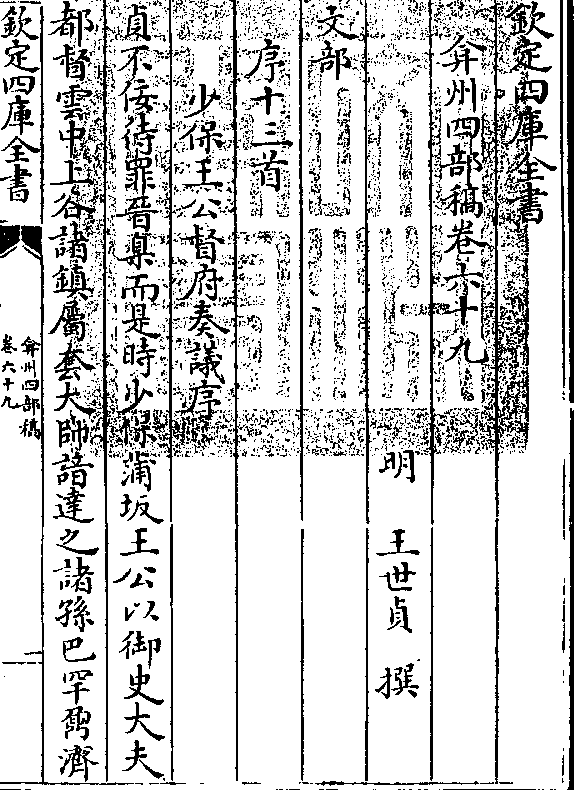 欽定四庫全書
弇州四部稿卷六十九
明 王世貞 撰
文部
序十三首
少保王公督府奏議序
貞不佞待罪晉臬而是時少保蒲坂王公以御史大夫
都督雲中上谷諸鎮屬套大師諳達之諸孫巴罕鼐濟
欽定四庫全書
弇州四部稿
卷六十九
一